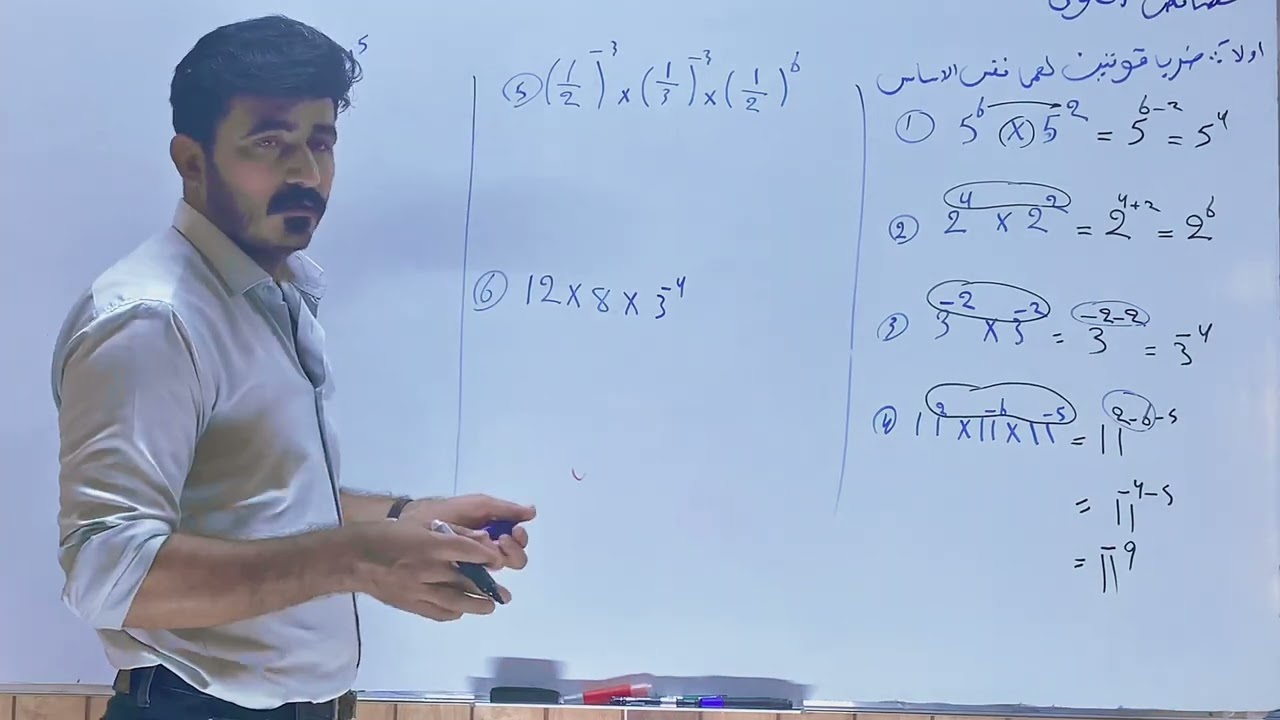 خصائص القوى
اولاً: ضرب قوتين لهما نفس الاساس
① 5^6 × 5^-2 = 5^6-2 = 5^4
② 2^4 × 2^2 = 2^4+2 = 2^6
③ 3^-2 × 3^-2 = 3^-2-2 = 3^-4
④ 11^2 × 11^-6 × 11^-5 = 11^2-6-5
= 11^-4-5
= 11^-9
⑤ (1/2)^-3 × (1/3)^-3 × (1/2)^6
⑥ 12 × 8 × 3^-4
5